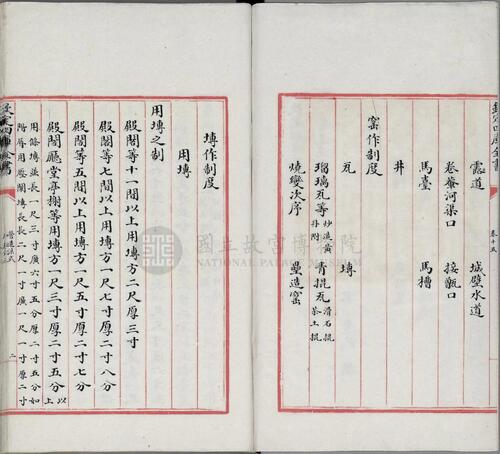 欽定四庫全書
卷十五
露道 城壁水道
卷輂河渠口 接甑口
馬臺 馬槽
井
窑作制度
瓦 塼
瑠璃瓦等炒造黃丹附 青掍瓦滑石掍茶土掍
燒變次序 壘造窑
塼作制度
用塼
用塼之制
殿閣等十一間以上用塼方二尺厚三寸
殿閣等七間以上用塼方一尺七寸厚二寸八分
殿閣等五間以上用塼方一尺五寸厚二寸七分
殿閣廳堂亭榭等用塼方一尺三寸厚二寸五分以上
用條塼並長一尺三寸廣六寸五分厚二寸五分如
階脣用壓闌塼長二尺一寸廣一尺一寸厚二寸
欽定四庫全書
營造法式
二
國立故宮博物院
NATIONAL PALACE MUSEUM